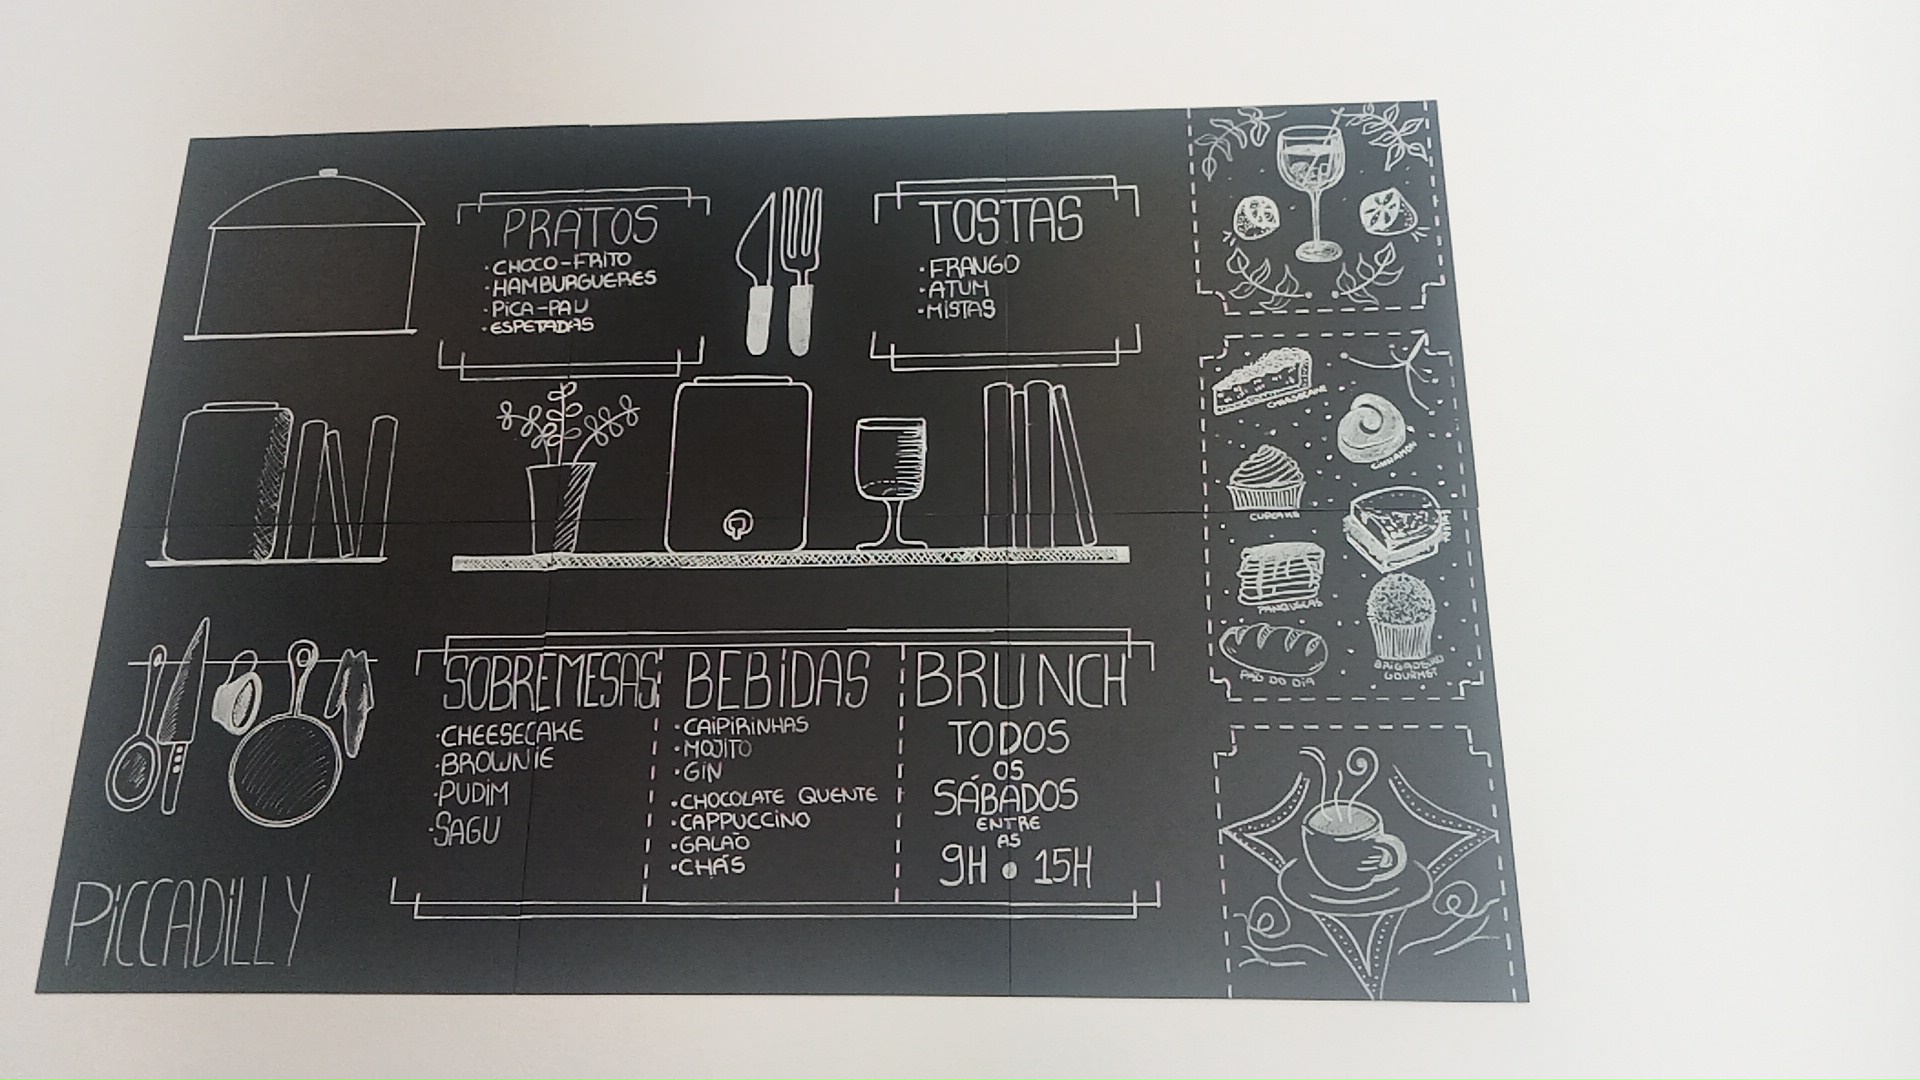 PRATOS
·CHOCO-FRITO
·HAMBURGUERES
·PICA-PAU
·ESPETADAS
TOSTAS
·FRANGO
·ATUM
·MISTAS
SOBREMESAS
·CHEESECAKE
·BROWNIE
·PUDIM
·SAGU
BEBIDAS
·CAIPIRINHAS
·MOJITO
·GIN
·CHOCOLATE QUENTE
·CAPPUCCINO
·GALÃO
·CHÁS
BRUNCH
TODOS
OS
SÁBADOS
ENTRE
AS
9H • 15H
PICCADILLY
CHEESECAKE
CINNAMON
CUPCAKE
PANQUECAS
PÃO DO DIA
BRIGADEIRO
GOURMET